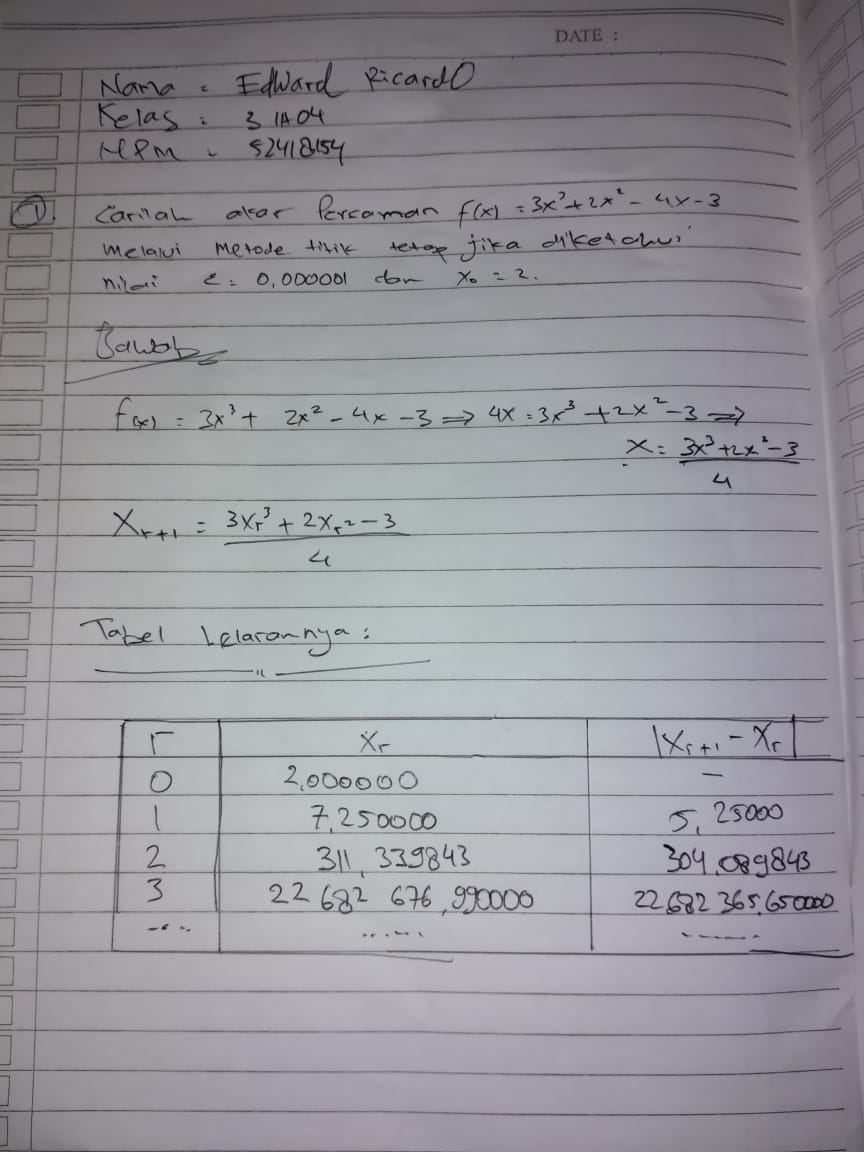 DATE :
Nama : Edward Ricardo
Kelas : 3 IA04
NPM : 52418154
① Carilah akar Persamaan f(x) = 3x³ + 2x² - 4x - 3
melalui metode titik tetap jika diketahui
nilai ε = 0,000001 dan x₀ = 2.
Jawab
f(x) = 3x³ + 2x² - 4x - 3 ⇒ 4x = 3x³ + 2x² - 3 ⇒
x = (3x³ + 2x² - 3) / 4
Xr+1 = (3Xr³ + 2Xr² - 3) / 4
Tabel Lelarannya :
r Xr |Xr+1 - Xr|
0 2,000000 -
1 7,250000 5,25000
2 311,339843 304,089843
3 22 682 676,990000 22 682 365,650000
..... ...... .......